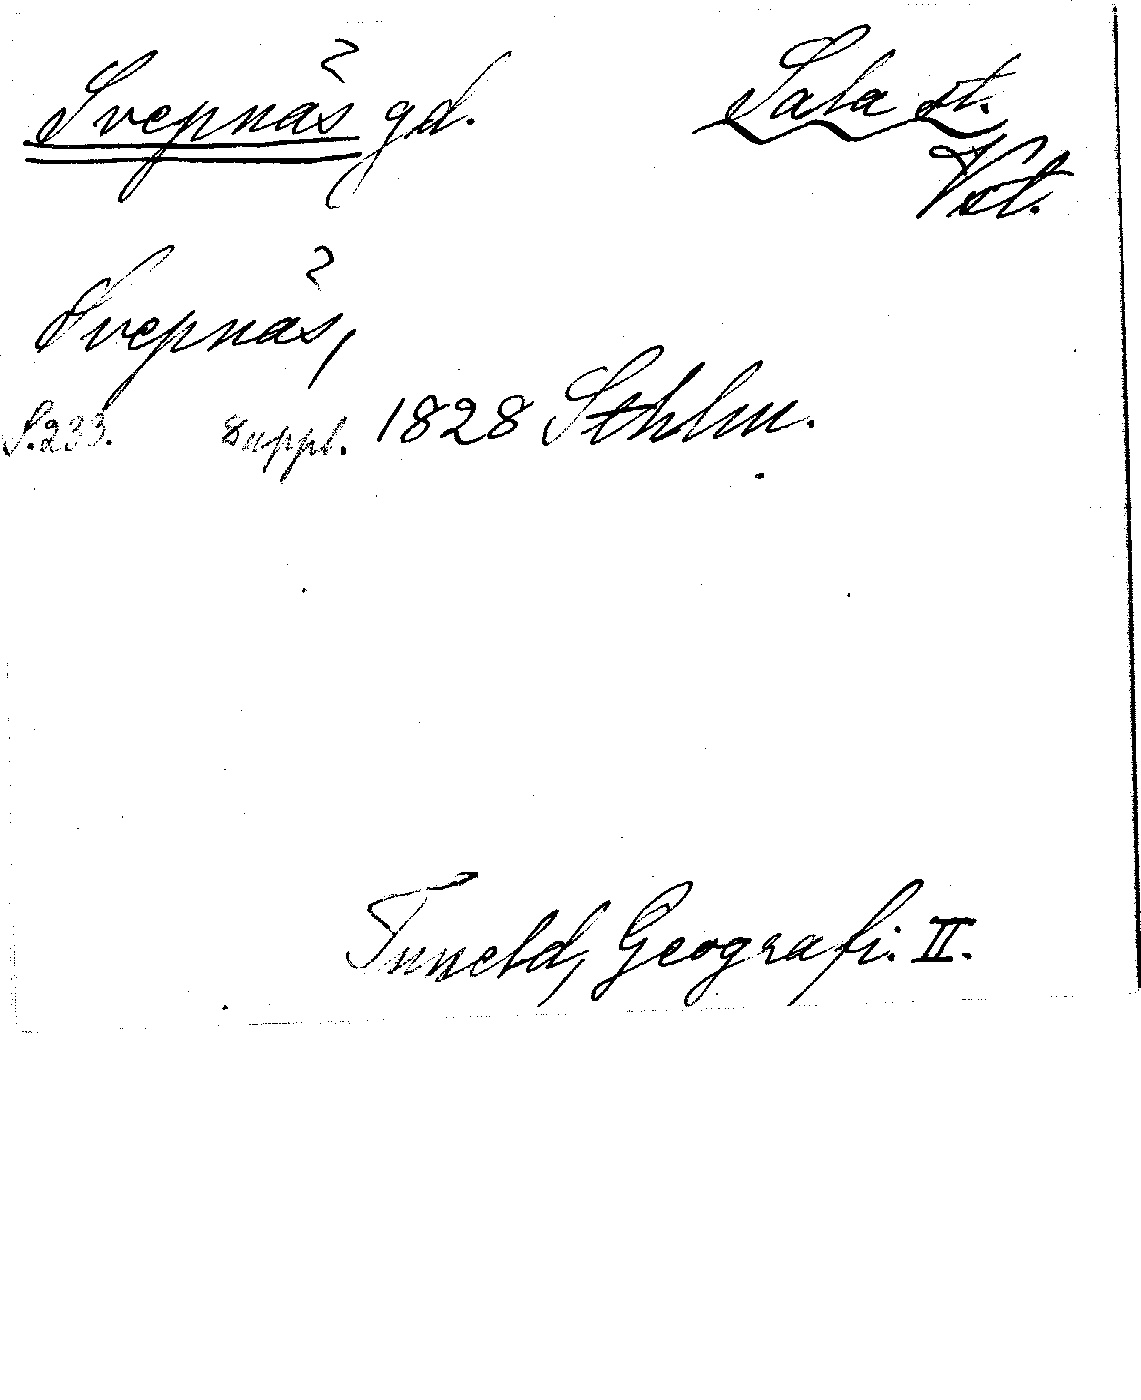 Svepnäs gd. Sala st.
Vst.
Svepnäs,
S. 233. Suppl. 1828 Sthlm.
Tuneld, Geografi. II.